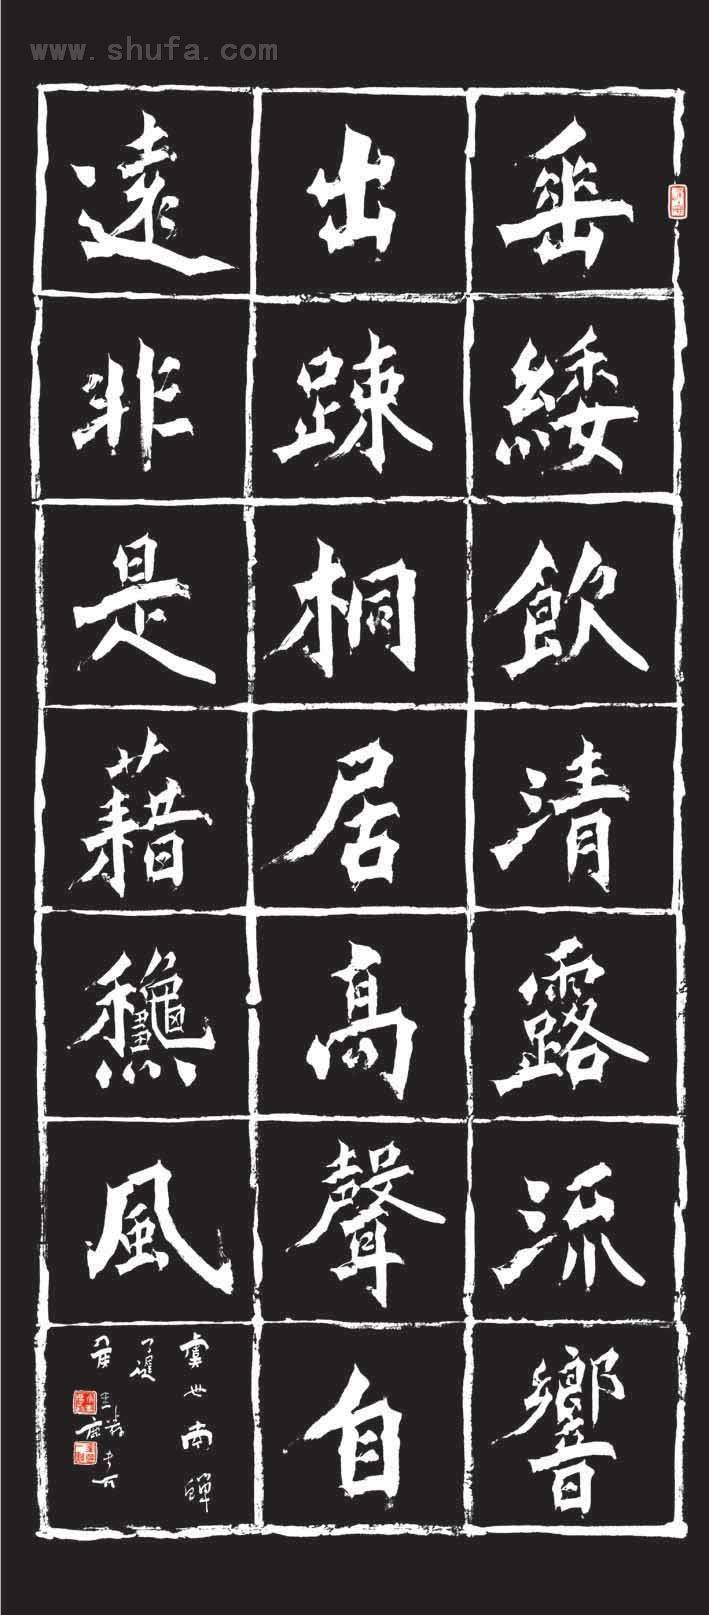 www.shufa.com
垂緌飲清露流響
出踈桐居高聲自
遠非是藉龝風
虞世南蟬